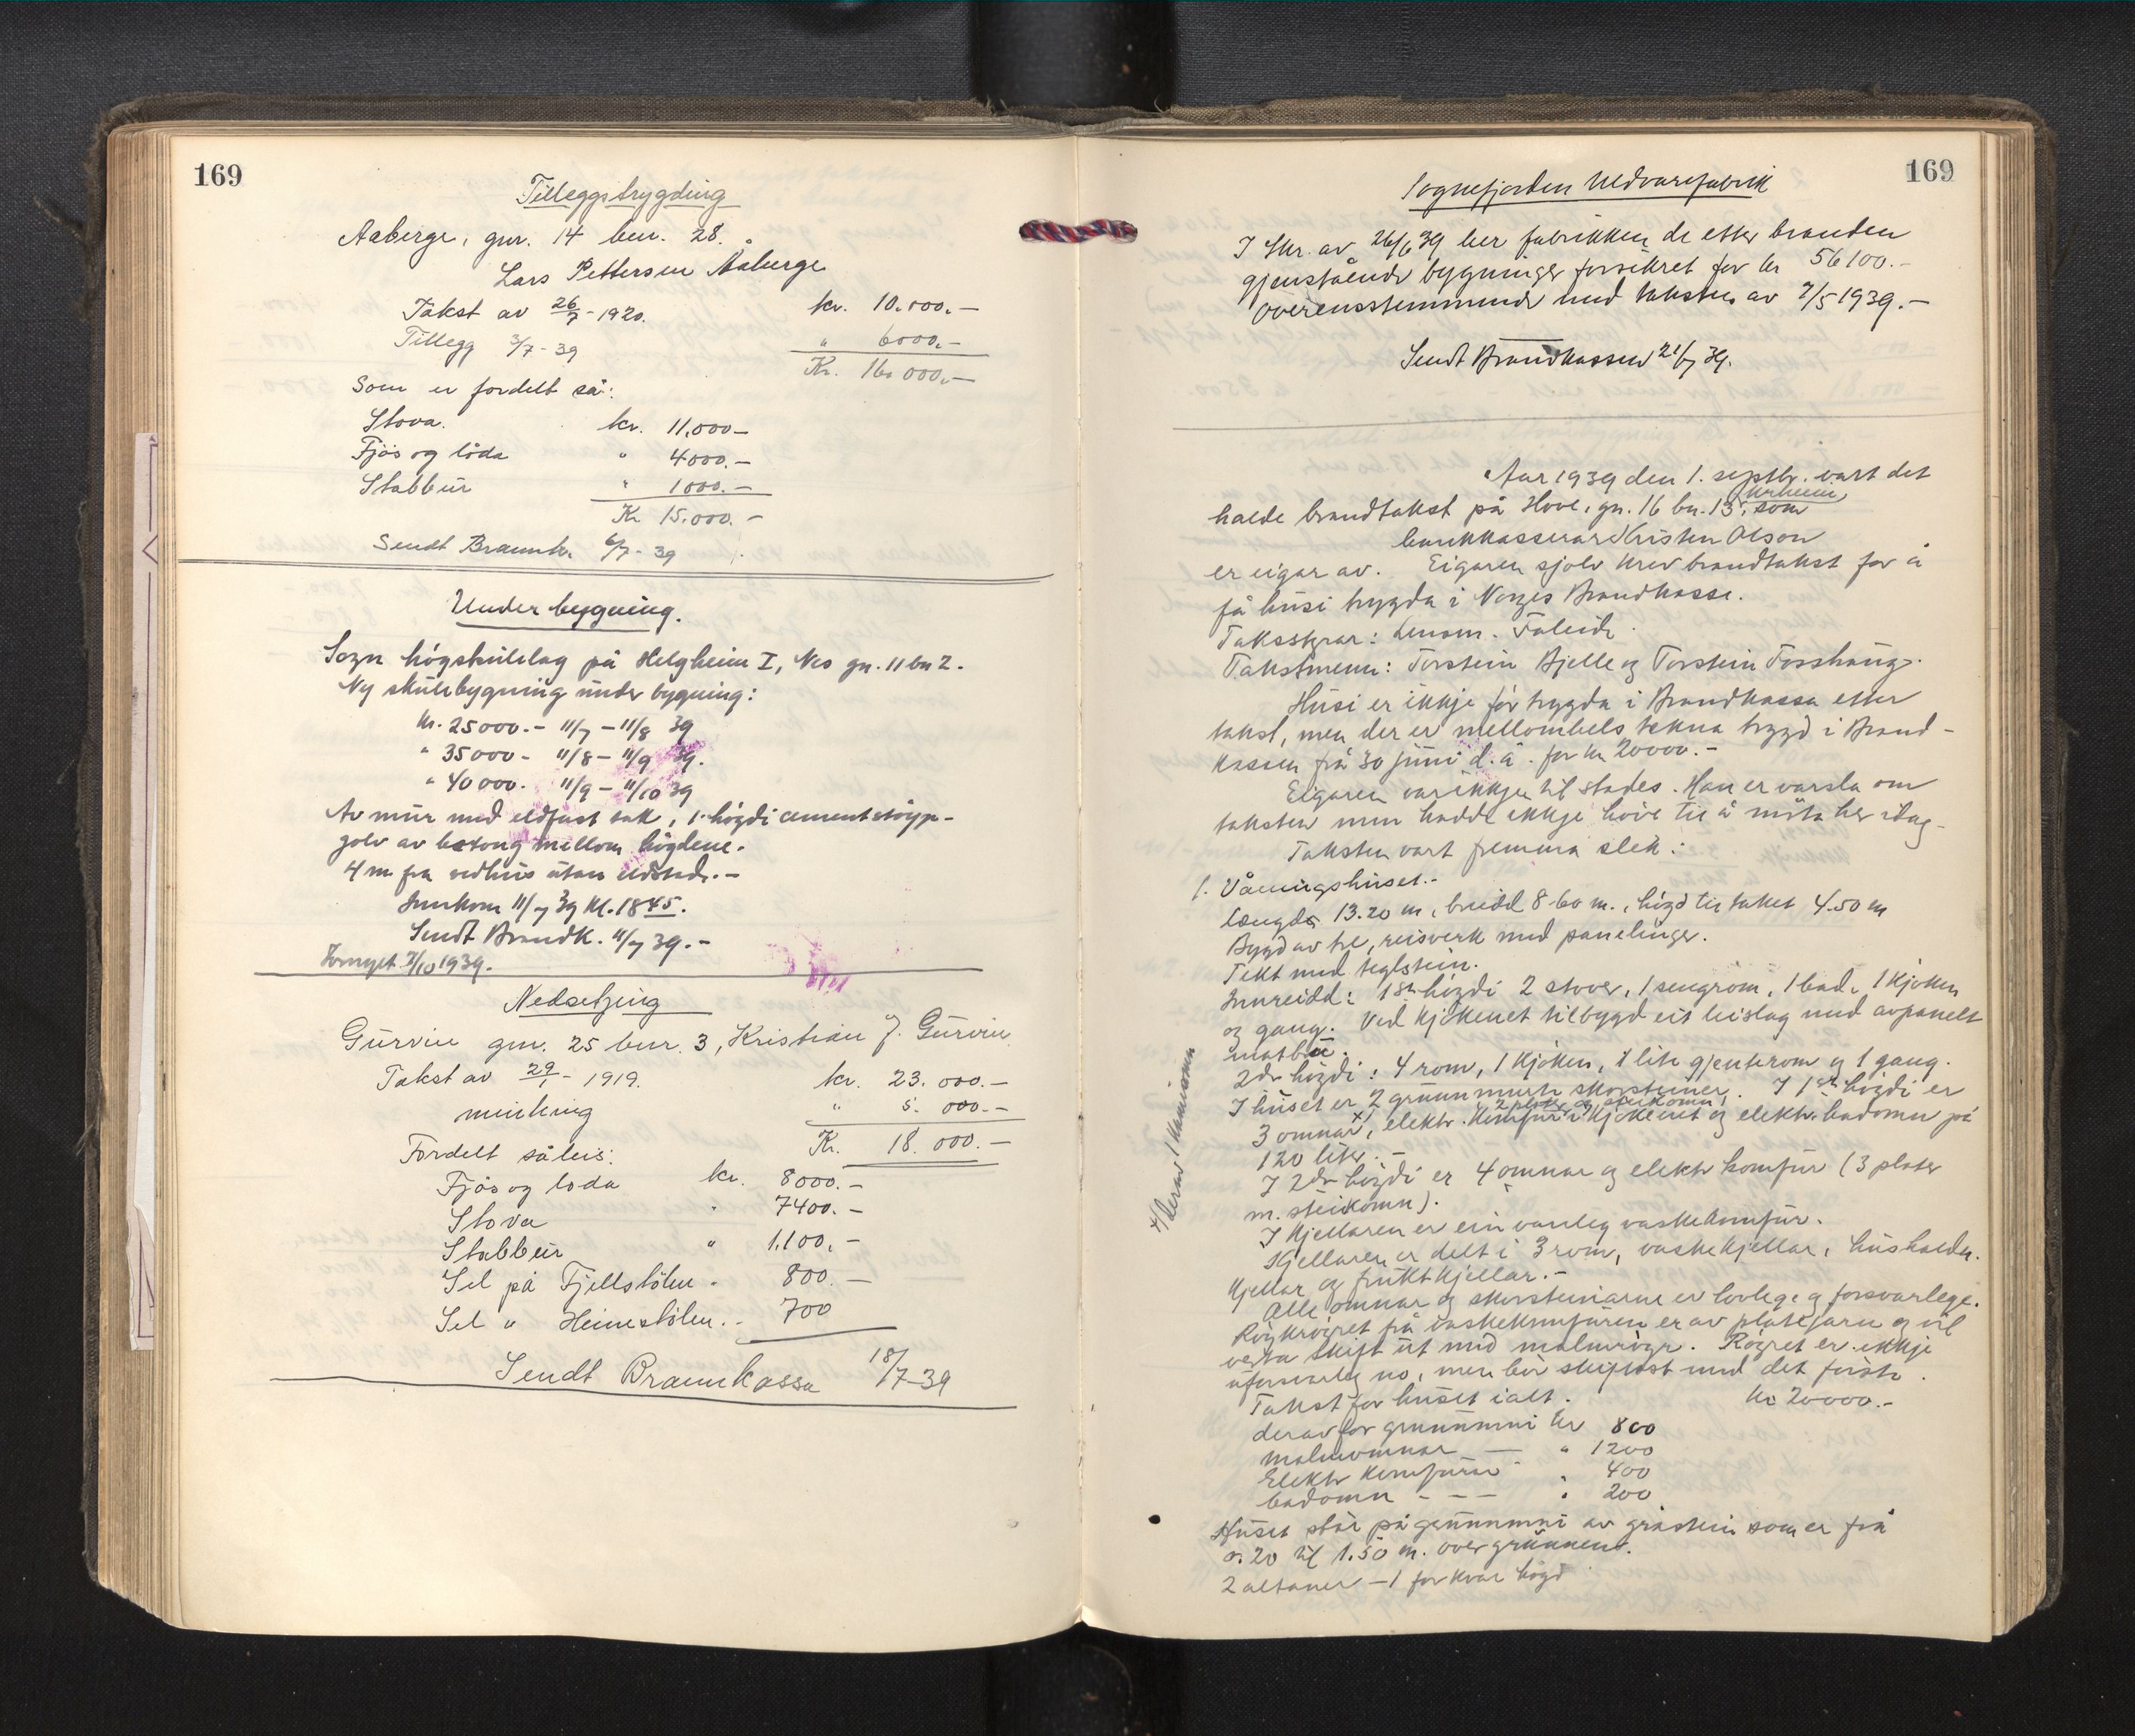 169
Tilleggstrygding
Aaberge, gnr. 14 bnr. 28.
Lars Pettersen Åaberge
Takst av 26/7 - 1920. kr. 10.000.—
Tillegg 3/7 - 39 " 6000.—
Kr. 16 000.—
Som er fordelt så:
Stova. kr. 11.000—
Fjøs og löda " 4000.—
Stabbur " 1000.—
Kr 15.000.—
Sendt Brannk. 6/7 - 39
Under bygning.
Sogn högskulelag på Helgheim I, Nes gn. 11 bn 2.
Ny skulebygning under bygning:
kr. 25000.- 11/7 – 11/8 39
" 35000 - 11/8 – 11/9 39.
" 40 000. 11/9 – 11/10 39
Av mur med eldfast tak, 1. högdi cementstöyp-
golv av betong mellom högdene.
4 m fra vedhus utan eldstad.—
Innkom 11/7 39 kl. 18 45.
Sendt Brandk. 11/7 39.—
Fornyet 7/10 1939.
Nedsetjing
Gurvin gnr. 25 bnr. 3, Kristian J. Gurvin
Takst av 29/1 - 1919. kr. 23.000.—
minking " 5.000.—
Kr. 18.000.—
Fordelt såleis:
Fjøs og löda kr. 8000.—
Stova " 7400.—
Stabbur " 1.100.—
Sel på Fjellstölen - 800.—
Sel " Heimestölen.. 700
Sendt Brannkassa 18/7-39
169
Sognefjorden Uldvarefabrik
I Skr. av 26/6 39 ber fabrikken de efter branden
gjenstående bygninger forsikret for kr 56100.-
overensstemmende med taksten av 7/5 1939.—
Sendt Brandkassen 21/7 39.
Aar 1939 den 1. septbr. vart det
halde brandtakst på Hove, gn. 16 bn. 13, som
bankkasserar Kristen Olson
er eigar av. Eigaren sjølv krev brandtakst for å
få husi trygda i Norges Brandkasse.
Taksstyrar: Lensm. Faleide.
Takstmenn: Torstein Bjelle og Torstein Fosshaug.
Husi er ikkje før trygda i Brandkassa etter
takst, men der er mellombels tekna trygd i Brand-
kassen frå 30 juni d.å. for kr 20000.-
Eigaren var ikkje til stades. Han er varsla om
taksten men hadde ikkje höve til å möta her idag.
Taksten vart fremma slik:
1. Våningshuset.-
Længde 13.20 m, breidd 8.60 m., högd til taket 4.50 m
Bygd av tre, reisverk med panelinger.
Tekt med teglstein.
Innreidd: 1ste högdi 2 stover, 1 sengrom, 1 bad, 1 kjøken
og gang. Ved kjøkenet tilbygd eit bislag med avpanelt
matbu.
2dre högdi: 4 rom, 1 kjøken, 1 lite gjenterom og 1 gang.
I huset er 2 grunnmurte skorsteiner. I 1ste högdi er
2 plater og steikomn
3 omnar x), elektr. komfur i kjøkenet og elektr. badomn på
120 liter.-
x) Derav 1 kaminomn
I 2dre högdi er 4 omnar og elektr komfur (3 plater
m. steikomn).
I kjellaren er ein vanleg vaskekomfur.
Kjellaren er delt i 3 rom, vaskekjellar, hushalds-
kjellar og fruktkjellar.-
Alle omnar og skorsteinarne er lovlege og forsvarlege.
Röykröyret frå vaskekomfuren er av platejarn og vil
verta skift ut med malmröyr. Röyret er ikkje
uforsvarleg no, men bör skiftast med det första.
Takst for huset ialt. Kr 20000.-
derav for grunnmur kr 800
malmomnar — " 1200
Elektr komfurar " 400
badomn - - — " 200
Huset står på grunnmur av gråstein som er frå
0.20 til 1.50 m. over grunnen.
2 altaner – 1 for kvar högd